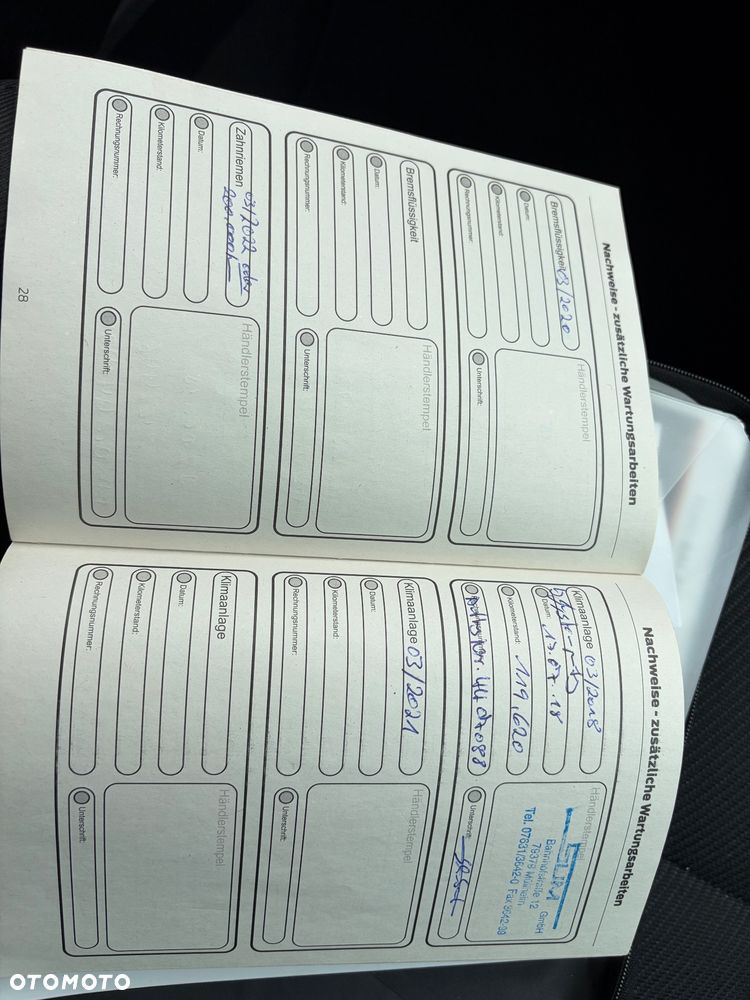 Nachweise - zusätzliche Wartungsarbeiten
Bremsflüssigkeit 03/2020
Datum:
Kilometerstand:
Rechnungsnummer:
Händlerstempel
Unterschrift:
Bremsflüssigkeit
Datum:
Kilometerstand:
Rechnungsnummer:
Händlerstempel
Unterschrift:
Zahnriemen 03/2022 oder
200.000k
Datum:
Kilometerstand:
Rechnungsnummer:
Händlerstempel
Unterschrift:
28
Nachweise - zusätzliche Wartungsarbeiten
Klimaanlage 03/2018
Datum: 17.07.18
Kilometerstand: 119.620
Händlerstempel
GmbH
Bahnhofstraße 12
79379 Müllheim
Tel. 07631/3642-0 Fax 3642-39
Unterschrift:
Klimaanlage 03/2021
Datum:
Kilometerstand:
Rechnungsnummer:
Händlerstempel
Unterschrift:
Klimaanlage
Datum:
Kilometerstand:
Rechnungsnummer:
Händlerstempel
Unterschrift:
OTOMOTO